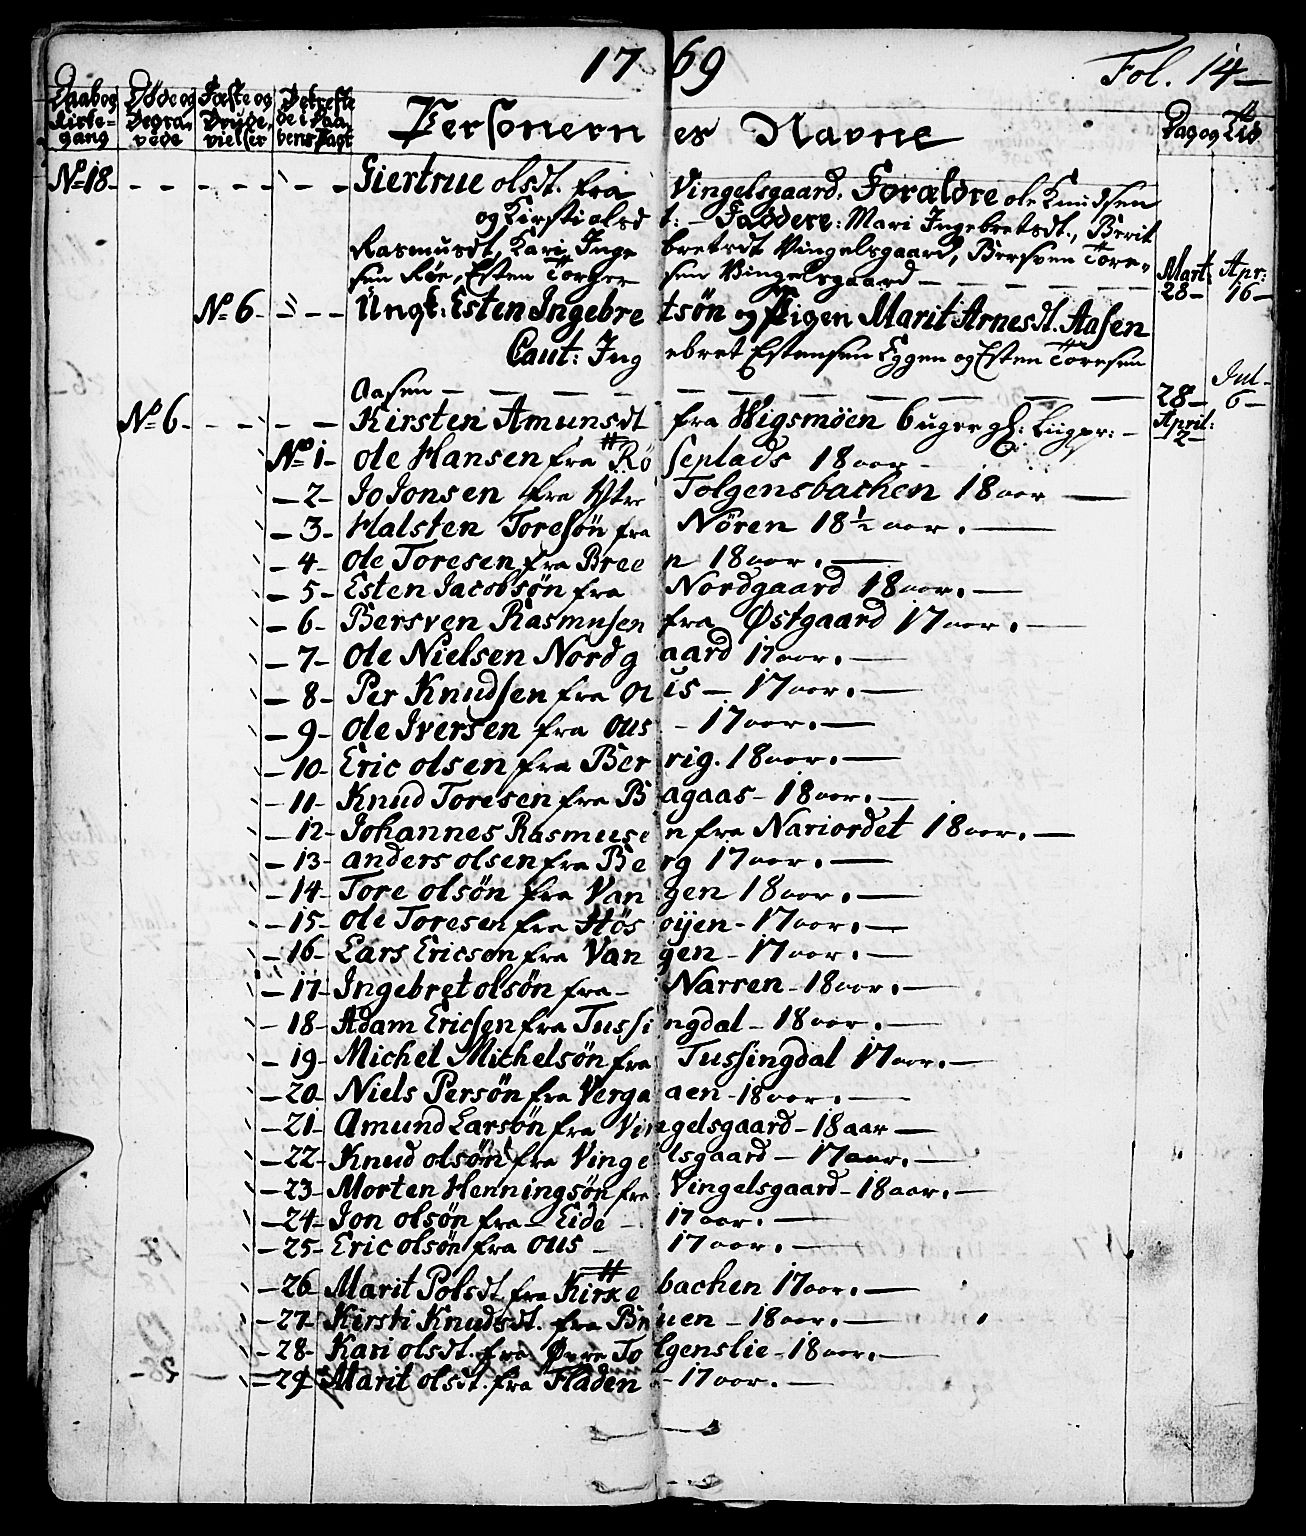 1769
Fol. 14
Daab og Kirke-gang
Døde og Begravede
Fæste og Brude vielser
Personernes Navne
Dag og Tid
No 18 - - - - - - - Giertrue olsdt. fra Vingelsgaard, Forældre ole Knudsen
og Kirsti olsdt: - Faddere: Mari Ingebretsdt., Berit
Rasmusdt, Kari Ingebretsdt Vingelsgaard, Bersven Tore-
sen Røe, Esten Vingelsgaard - - - - - Mart: 28 - Apr: 16 -
No 6 - - - - Ungk: Esten Ingebretsøn og Pigen Marit Arnesdt. Aasen
Caut: Ingebret Estensen Eggen og Esten Toresen
Aasen - - - - - 28 - Jul - 6 -
No 6 - - - - - Kirsten Amunsdt fra Wigsmøen 6 uger gl: Liigpr: - April: 2 -
No 1 - Ole Hansen fra Røseplads 18 aar -
- 2 - Jo Jonsen fra Ytre Tolgensbachen 18 aar -
- 3 - Halsten Toresøn fra Nören 18 1/2 aar. -
- 4 - Ole Toresen fra Breen 18 aar. -
- 5 - Esten Jacobsøn fra Nordgaard 18 aar. -
- 6 - Bersven Rasmusen fra Østgaard 17 aar. -
- 7 - Ole Nielsen Nordgaard 17 aar. -
- 8 - Per Knudsen fra Ous - 17 aar. -
- 9 - Ole Iversen fra Ous - 17 aar. -
- 10 - Eric olsen fra Berrig. 18 aar. -
- 11 - Knud Toresen fra Bagaas - 18 aar. -
- 12 - Johannes Rasmusen fra Nariordet 18 aar. -
- 13 - anders olsen fra Berg 17 aar. -
- 14 - Tore olsøn fra Vangen 18 aar. -
- 15 - Ole Toresen fra Høsøijen - 17 aar. -
- 16 - Lars Ericsen fra Vangen - 17 aar. -
- 17 - Ingebret olsøn fra - Narren - 18 aar. -
- 18 - Adam Ericsen fra Tussingdal - 18 aar. -
- 19 - Michel Michelsøn fra Tussingdal 17 aar. -
- 20 - Niels Persøn fra Vergaaen - 18 aar. -
- 21 - Amund Larsøn fra Vingelsgaard - 18 aar -
- 22 - Knud olsøn fra Vingelsgaard - 17 aar. -
- 23 - Morten Henningsøn fra Vingelsgaard - 18 aar. -
- 24 - Jon olsøn fra - Eide - 17 aar. -
- 25 - Eric olsøn fra Ous - 17 aar. -
- 26 Marit Polsdt. fra Kirkebachen 17 aar. -
- 27 - Kirsti Knudsdt. fra - 18 aar. -
- 28 - Kari olsdt. fra Øvre Tolgenslie - 18 aar. -
- 29 Marit olsdt. fra Fladen - 17 aar. -